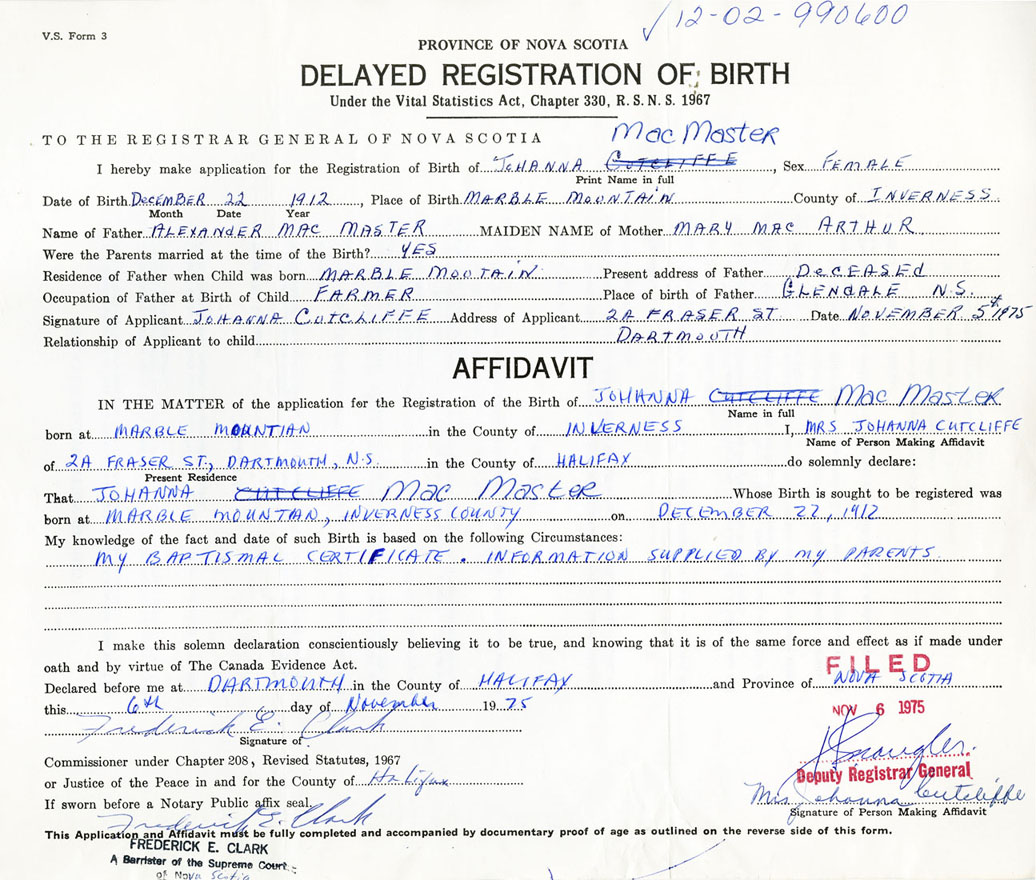 12-02-990600
V.S. Form 3
PROVINCE OF NOVA SCOTIA
DELAYED REGISTRATION OF BIRTH
Under the Vital Statistics Act, Chapter 330, R.S.N.S. 1967
TO THE REGISTRAR GENERAL OF NOVA SCOTIA Mac Master
I hereby make application for the Registration of Birth of JOHANNA CUTCLIFFE, Sex FEMALE
Print Name in full
Date of Birth DECEMBER 22 1912, Place of Birth MARBLE MOUNTAIN County of INVERNESS
Month Date Year
Name of Father ALEXANDER MAC MASTER MAIDEN NAME of Mother MARY MAC ARTHUR
Were the Parents married at the time of the Birth? YES
Residence of Father when Child was born MARBLE MOUTAIN Present address of Father DECEASED
Occupation of Father at Birth of Child FARMER Place of birth of Father GLENDALE N.S.
Signature of Applicant JOHANNA CUTCLIFFE Address of Applicant 2A FRASER ST Date NOVEMBER 5th 1975
Relationship of Applicant to child DARTMOUTH
AFFIDAVIT
IN THE MATTER of the application for the Registration of the Birth of JOHANNA CUTCLIFFE Mac Master
Name in full
born at MARBLE MOUNTIAN in the County of INVERNESS I, MRS JOHANNA CUTCLIFFE
Name of Person Making Affidavit
of 2A FRASER ST., DARTMOUTH, N.S. in the County of HALIFAX do solemnly declare:
Present Residence
That JOHANNA CUTCLIFFE Mac Master Whose Birth is sought to be registered was
born at MARBLE MOUNTAN, INVERNESS COUNTY on DECEMBER 22, 1912
My knowledge of the fact and date of such Birth is based on the following Circumstances:
MY BAPTISMAL CERTIFICATE. INFORMATION SUPPLIED BY MY PARENTS.
I make this solemn declaration conscientiously believing it to be true, and knowing that it is of the same force and effect as if made under
oath and by virtue of The Canada Evidence Act.
FILED
Declared before me at DARTMOUTH in the County of HALIFAX and Province of NOVA SCOTIA
this 6th day of November 1975
NOV 6 1975
Frederick E. Clark
Signature of
Commissioner under Chapter 208, Revised Statutes, 1967
Deputy Registrar General
or Justice of the Peace in and for the County of Halifax
Mrs Johanna Cutcliffe
If sworn before a Notary Public affix seal.
Signature of Person Making Affidavit
Frederick E. Clark
This Application and Affidavit must be fully completed and accompanied by documentary proof of age as outlined on the reverse side of this form.
FREDERICK E. CLARK
A Barrister of the Supreme Court
of Nova Scotia